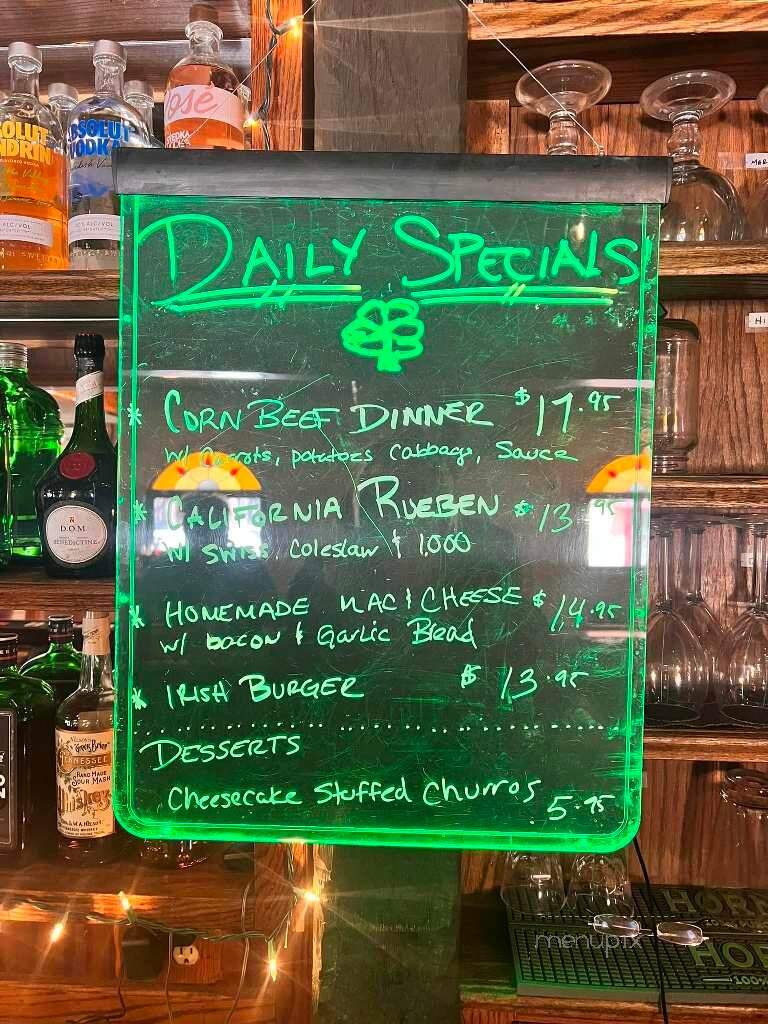 Rosé
VODKA
ABSOLUT
VODKA
DAILY SPECIALS
* CORN BEEF DINNER $17.95
w/ Carrots, potatoes Cabbage, Sauce
* CALIFORNIA RUEBEN $13.95
w/ SWISS, Coleslaw & 1,000
* HOMEMADE MAC & CHEESE $14.95
w/ bacon & Garlic Bread
* IRISH BURGER $13.95
DESSERTS
Cheesecake Stuffed Churros 5.95
D.O.M.
BENEDICTINE
Green Brier
TENNESSEE
HAND MADE
SOUR MASH
Whiskey
menupix
100%